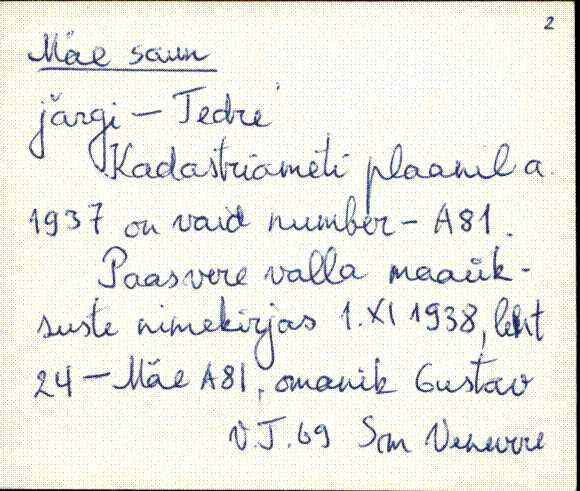 2
Mäe saun
järgi - Tedre
Kadastriameti plaanil a.
1937 on vaid number - A81.
Paasvere valla maaük-
suste nimekirjas 1.XI 1938, leht
24 - Mäe A81, omanik Gustav
V.J. 69 Sim Venevere